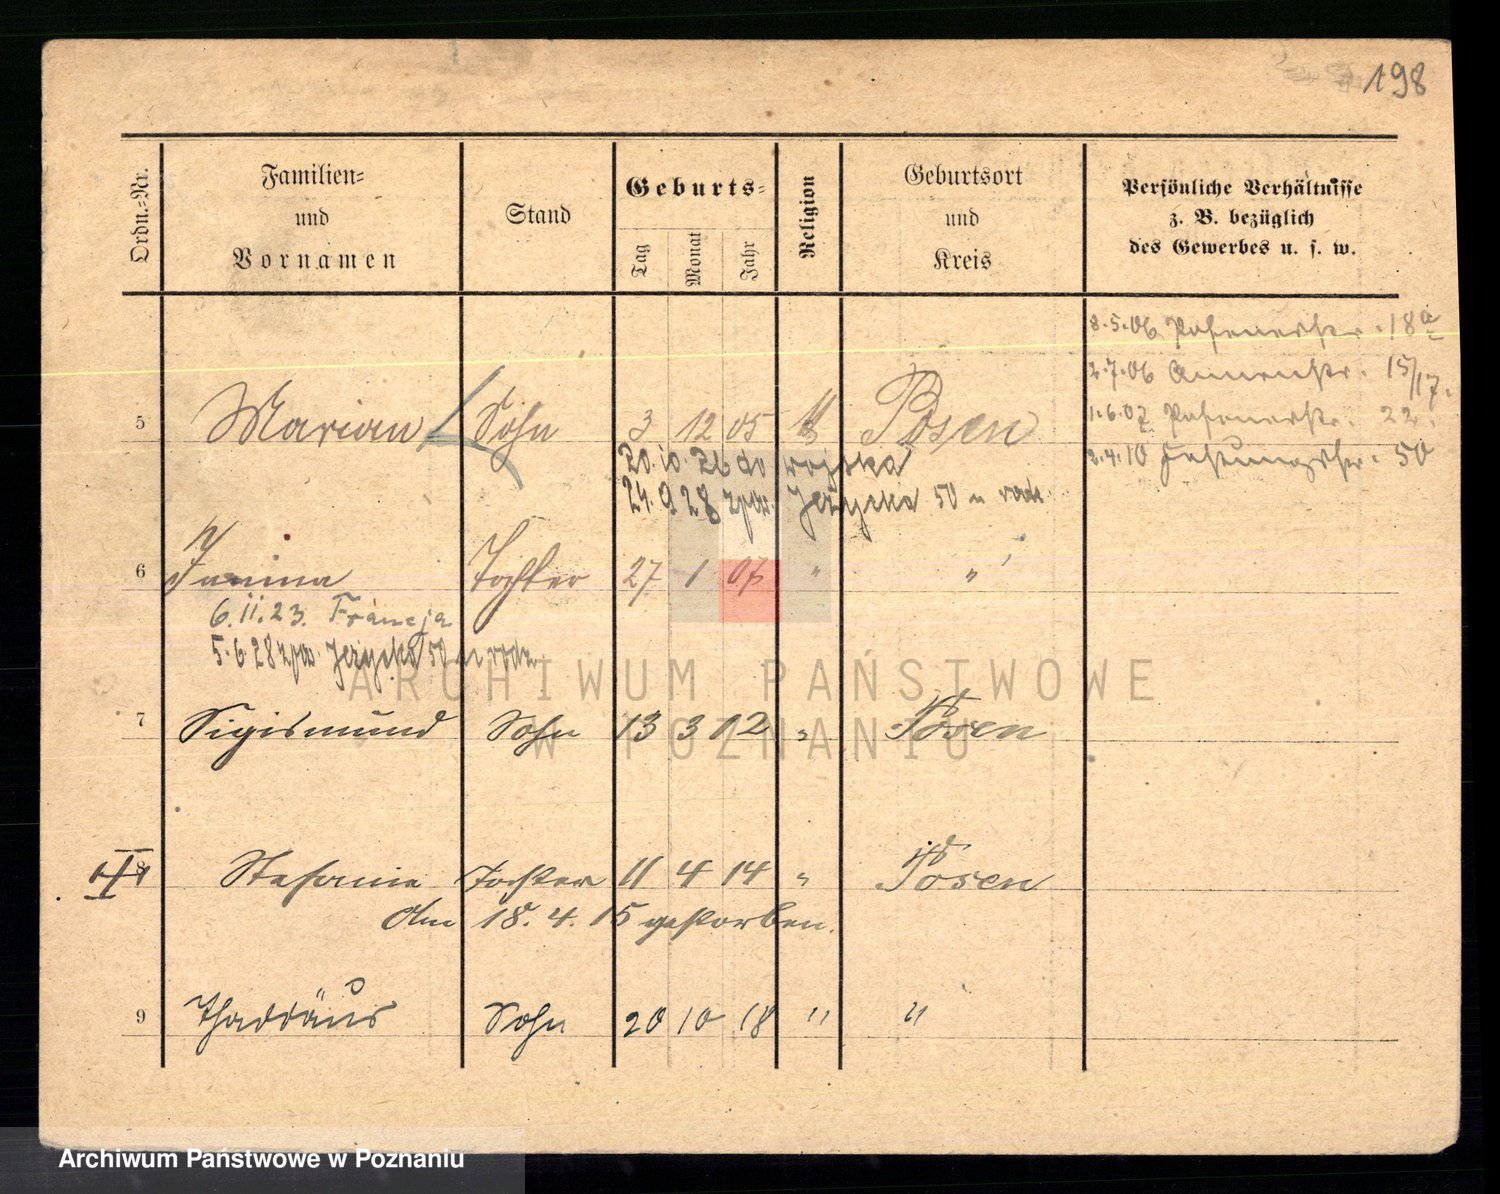 198
Ordn.-Nr.
Familien-
und
Vornamen
Stand
Geburts-
Tag
Monat
Jahr
Religion
Geburtsort
und
Kreis
Persönliche Verhältnisse
z. B. bezüglich
des Gewerbes u. s. w.
8.5.06 Posenerstr. 18a
2.7.06 Annenstr. 15/17.
1.6.07 Posenerstr. 22.
2.4.10 Festungsstr. 50
5 Marian Sohn 3 12 05 Posen
20.10.26 do wojska
24.9.28 zpw. Jeżycka 50 u rodz.
6 Janina Tochter 27 1 07 " "
6.11.23. Francja
5.6.28 zpw. Jeżycka 50 u rodz.
ARCHIWUM PAŃSTWOWE
W POZNANIU
7 Sigismund Sohn 13 3 12 " Posen
8 Stefanie Tochter 11 4 14 " Posen
Am 18. 4. 15 gestorben.
9 Thaddäus Sohn 20 10 18 " "
Archiwum Państwowe w Poznaniu